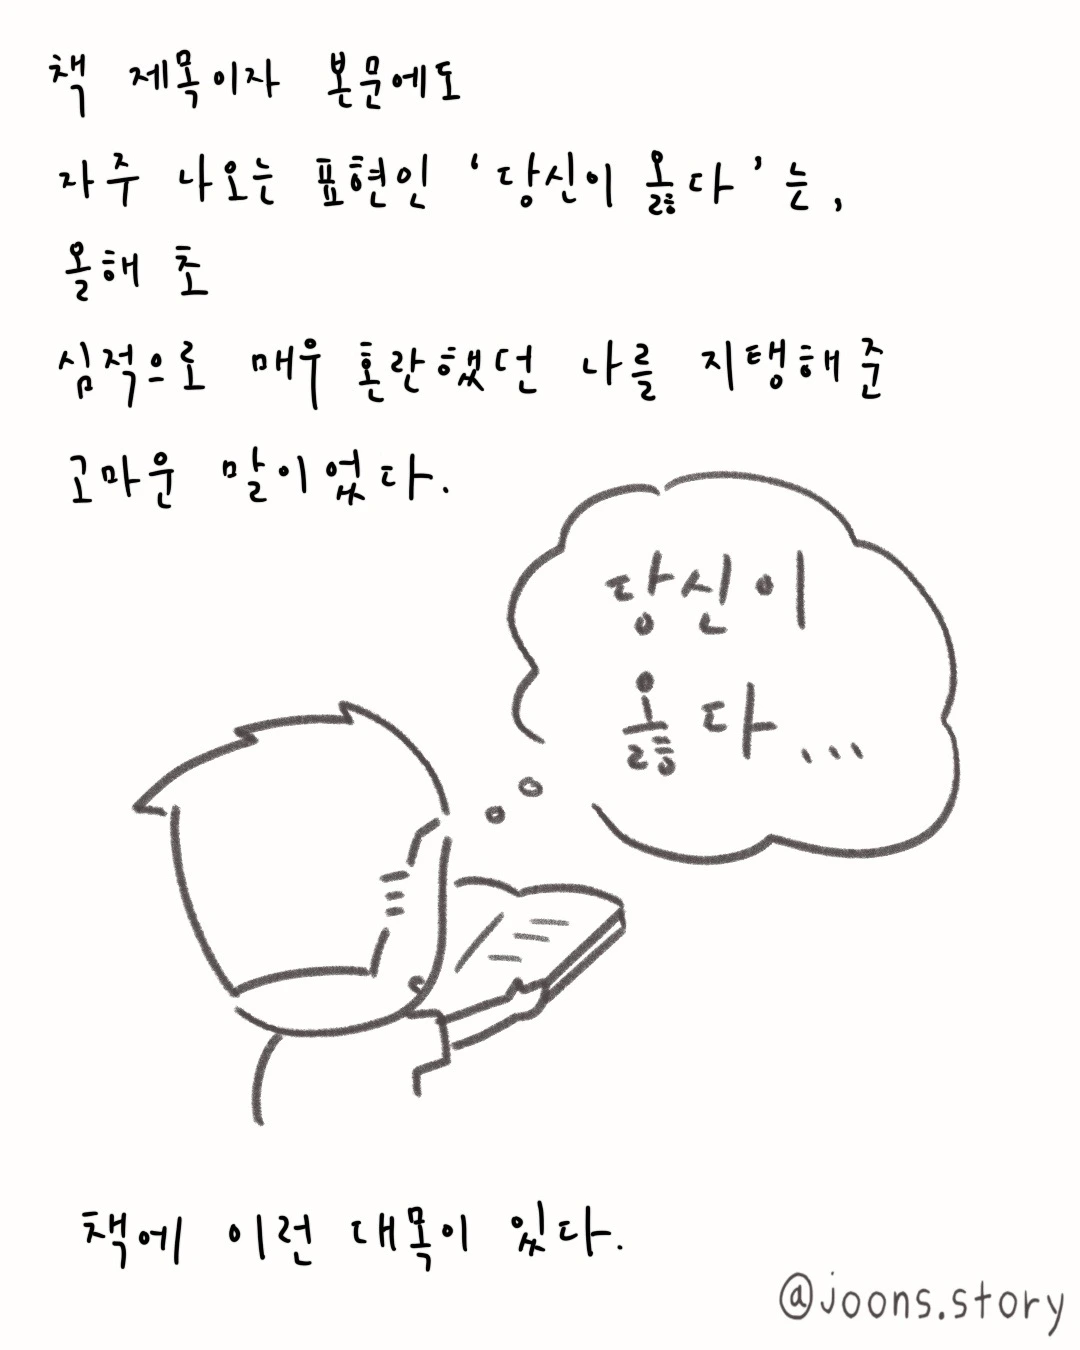 책 제목이자 본문에도
자주 나오는 표현인 '당신이 옳다'는,
올해 초
심적으로 매우 혼란했던 나를 지탱해준
고마운 말이었다.
당신이
옳다...
책에 이런 대목이 있다.
@joons.story